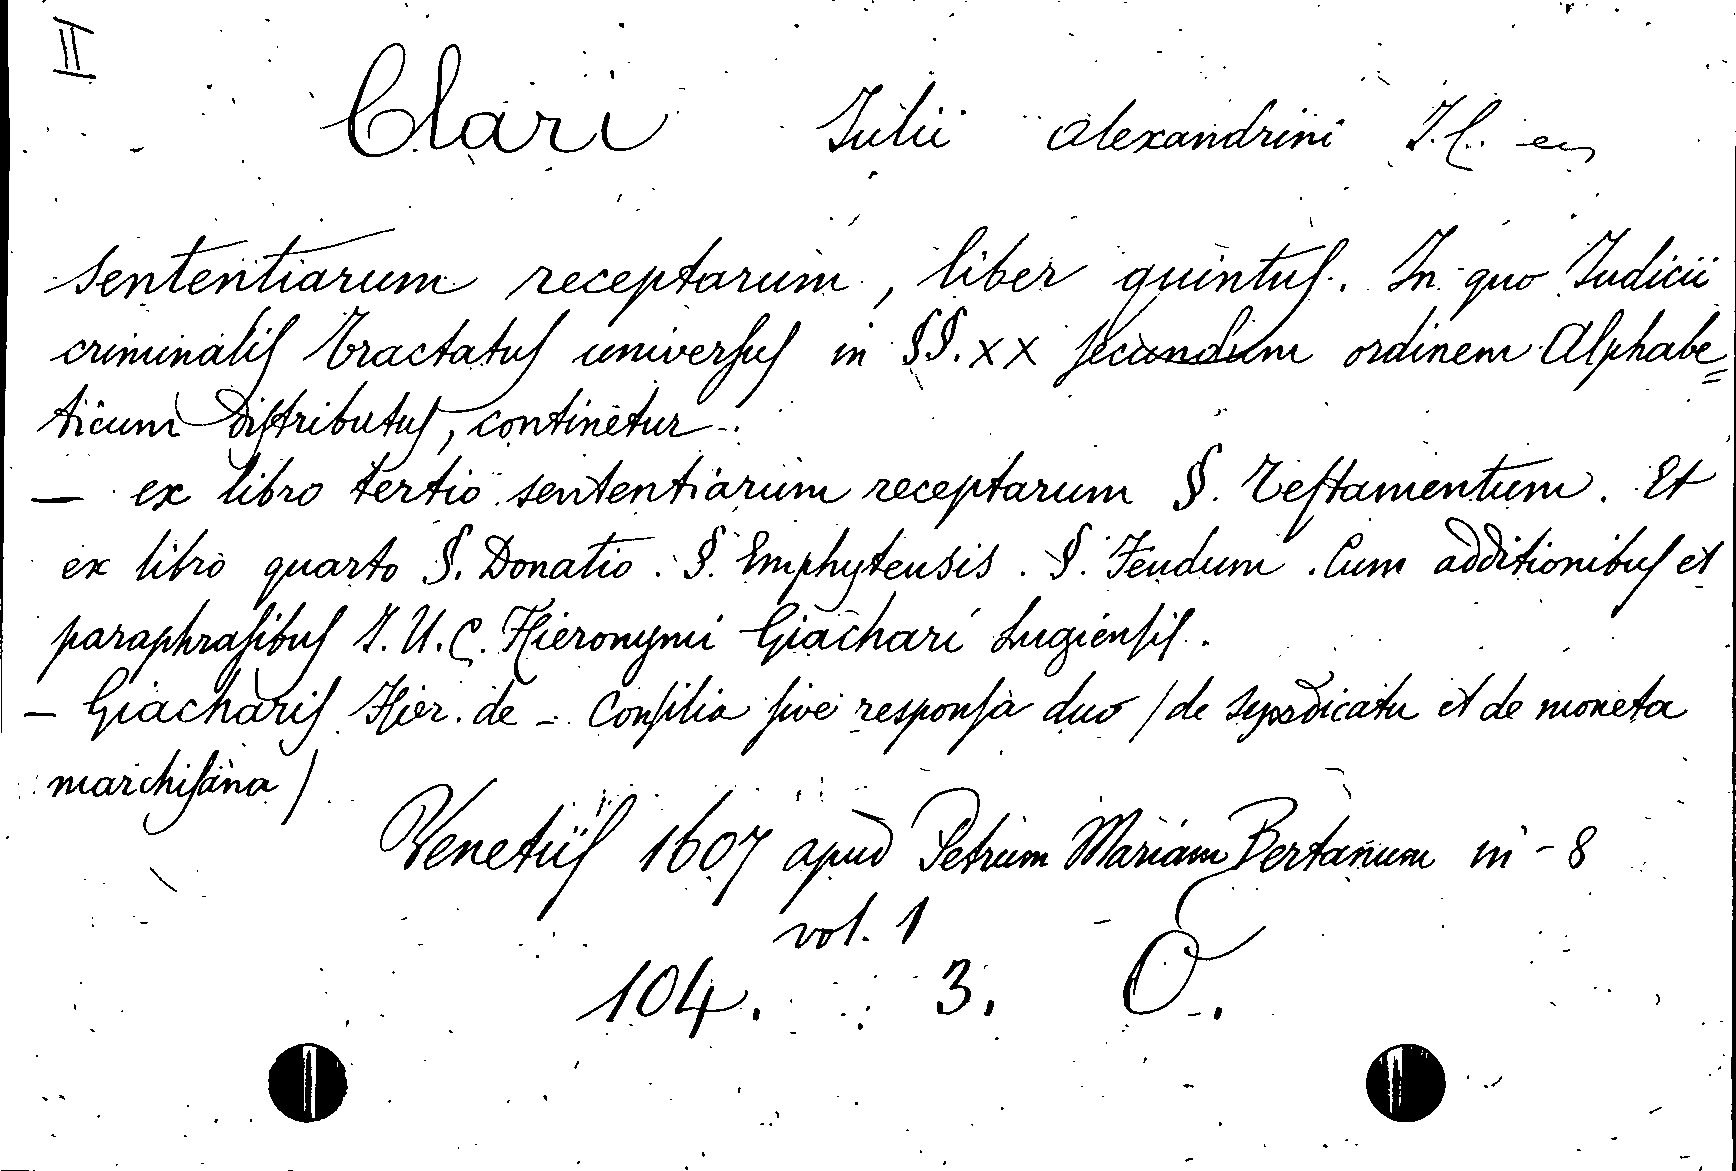 II
Clari Julii Alexandrini J.C.
sententiarum receptarum, liber quintus. In quo Judicii
criminalis tractatus universus in §§. XX secundum ordinem Alphabe=
ticum distributus, continetur.
— ex libro tertio sententiarum receptarum §. Testamentum. Et
ex libro quarto §. Donatio. §. Emphyteusis. §. Feudum. Cum additionibus et
paraphrasibus J.U.C. Hieronymi Giachari Lugiensis.
— Giacharis Hier. de — Consilia sive responsa duo / de syndicatu et de moneta
marchisana /
Venetiis 1607 apud Petrum Mariam Bertanum in - 8
vol. 1
104. 3. O.